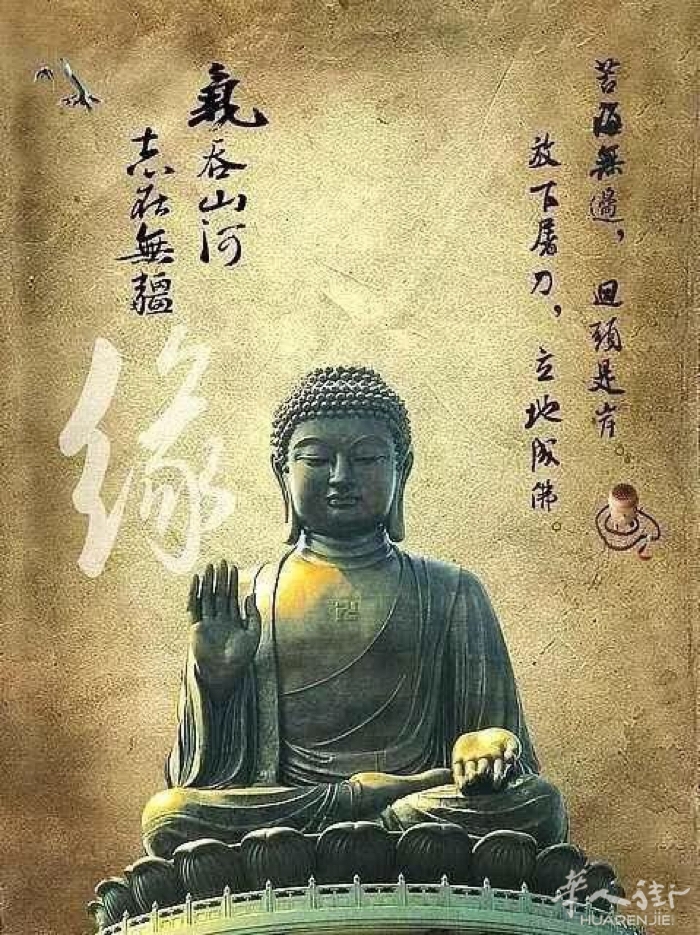 苦海無邊，回頭是岸。
放下屠刀，立地成佛。
氣吞山河
志在無疆
緣
华人街
HUARENJIE